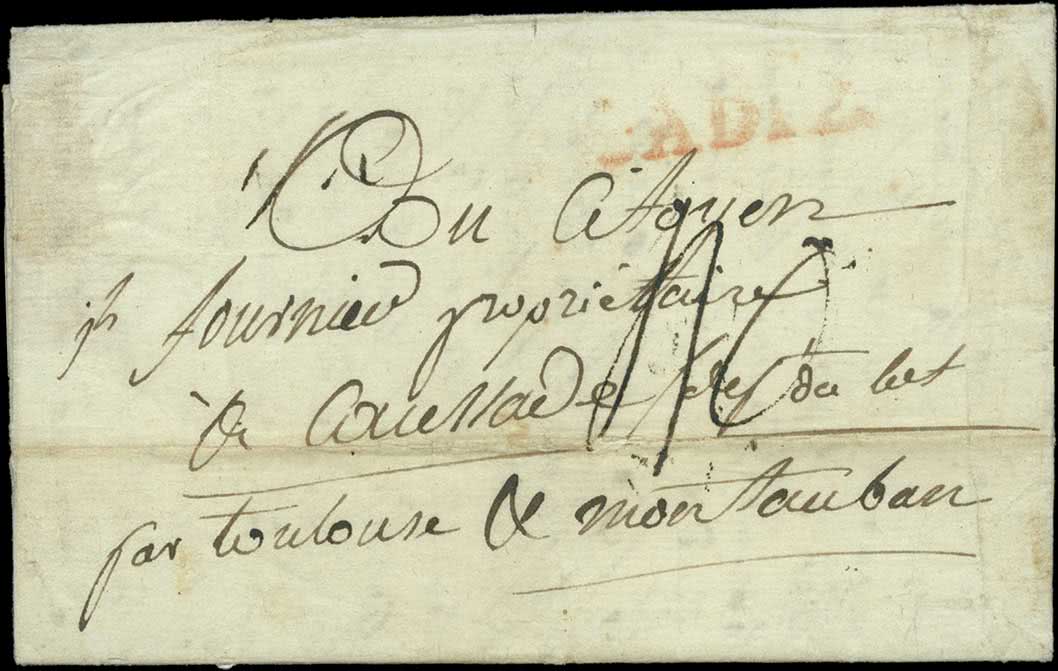 CADIZ
Du Citoyen
jh fournier propriéttaire
de Caussade depr du Lot
par toulouse & montauban